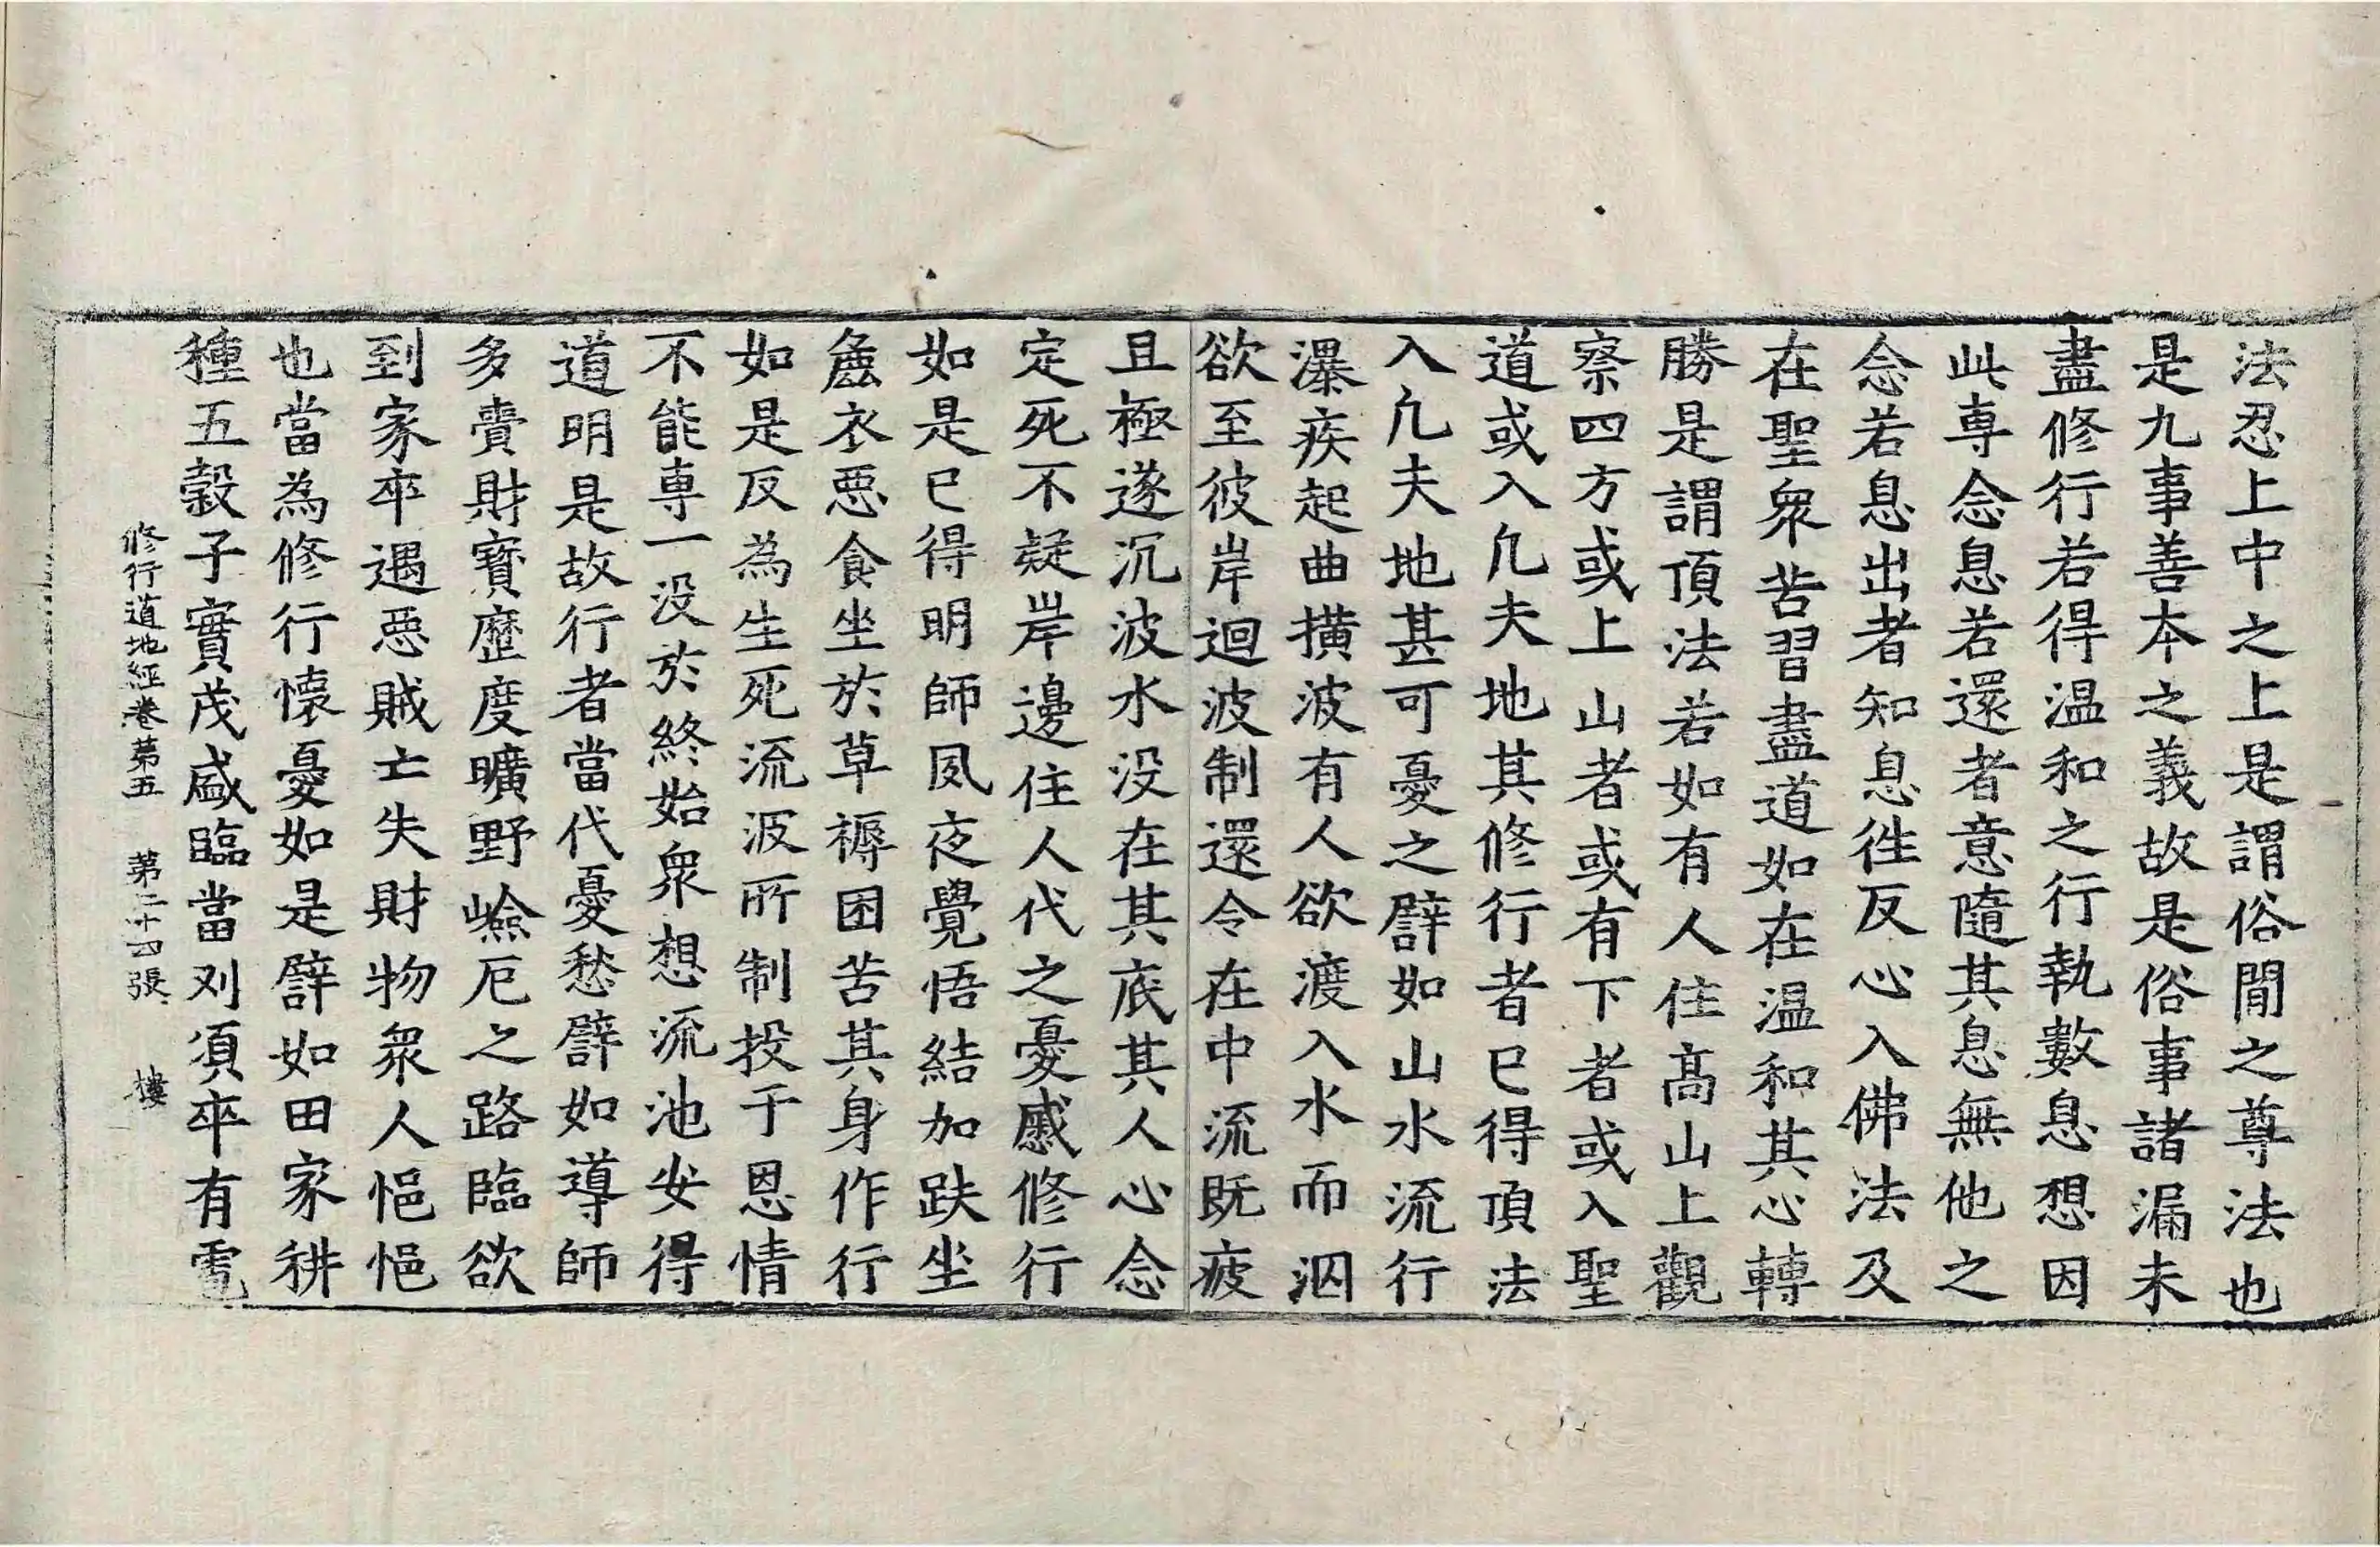 法忍上中之上是謂俗閒之尊法也
是九事善本之義故是俗事諸漏未
盡修行若得温和之行執數息想因
此専念息若還者意隨其息無他之
念若息出者知息徃反心入佛法及
在聖衆苦習盡道如在温和其心轉
勝是謂頂法若如有人住髙山上觀
察四方或上山者或有下者或入聖
道或入凢夫地其修行者已得頂法
入凢夫地甚可憂之譬如山水流行
瀑疾起曲撗波有人欲渡入水而泅
欲至彼岸迴波制還令在中流既疲
且極遂沉波水没在其底其人心念
定死不疑岸邊住人代之憂慼修行
如是已得明師夙夜覺悟結加趺坐
麁衣惡食坐於草褥困苦其身作行
如是反為生死流波所制投于恩情
不能専一没於終始衆想流池安得
道明是故行者當代憂愁譬如導師
多賷財寶歷度曠野嶮厄之路臨欲
到家卒遇惡賊亡失財物衆人悒悒
也當為修行懷憂如是譬如田家耕
種五穀子實茂盛臨當刈湏卒有雹
修行道地經卷第五 第二十四張 樓